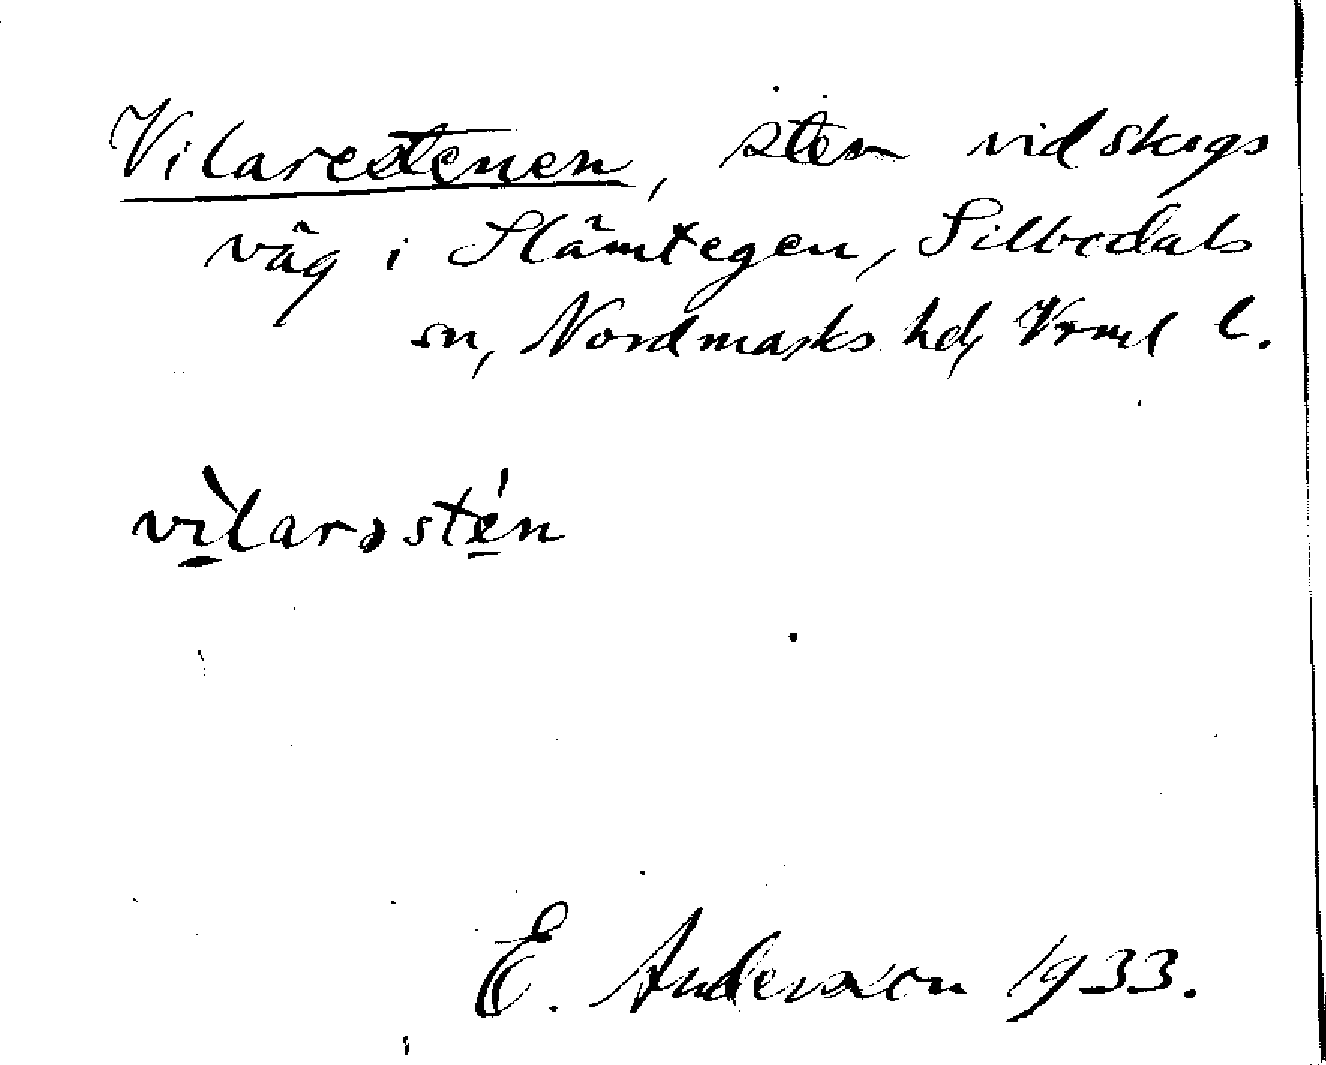 Vilarestenen, sten vid skogs
väg i Slämtegen, Sillbodals
sn, Nordmarks hd, Vrml l.
vìlarəstén
E. Anderson 1933.